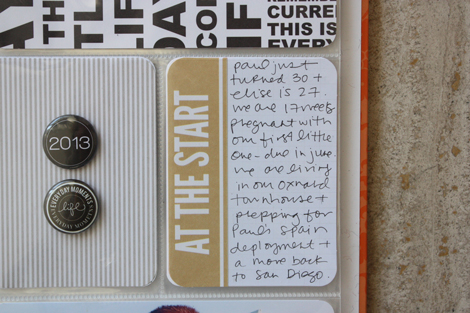 LIFE
REMEMBER
CURRE
THIS IS
EVERY
2013
EVERYDAY MOMENTS
life
EVERYDAY MOMENTS
AT THE START
paul just
turned 30 +
elise is 27.
we are 17 weeks
pregnant with
our first little
one - due in june.
we are living
in our oxnard
townhouse +
prepping for
Paul's Spain
deployment +
a move back
to San Diego.